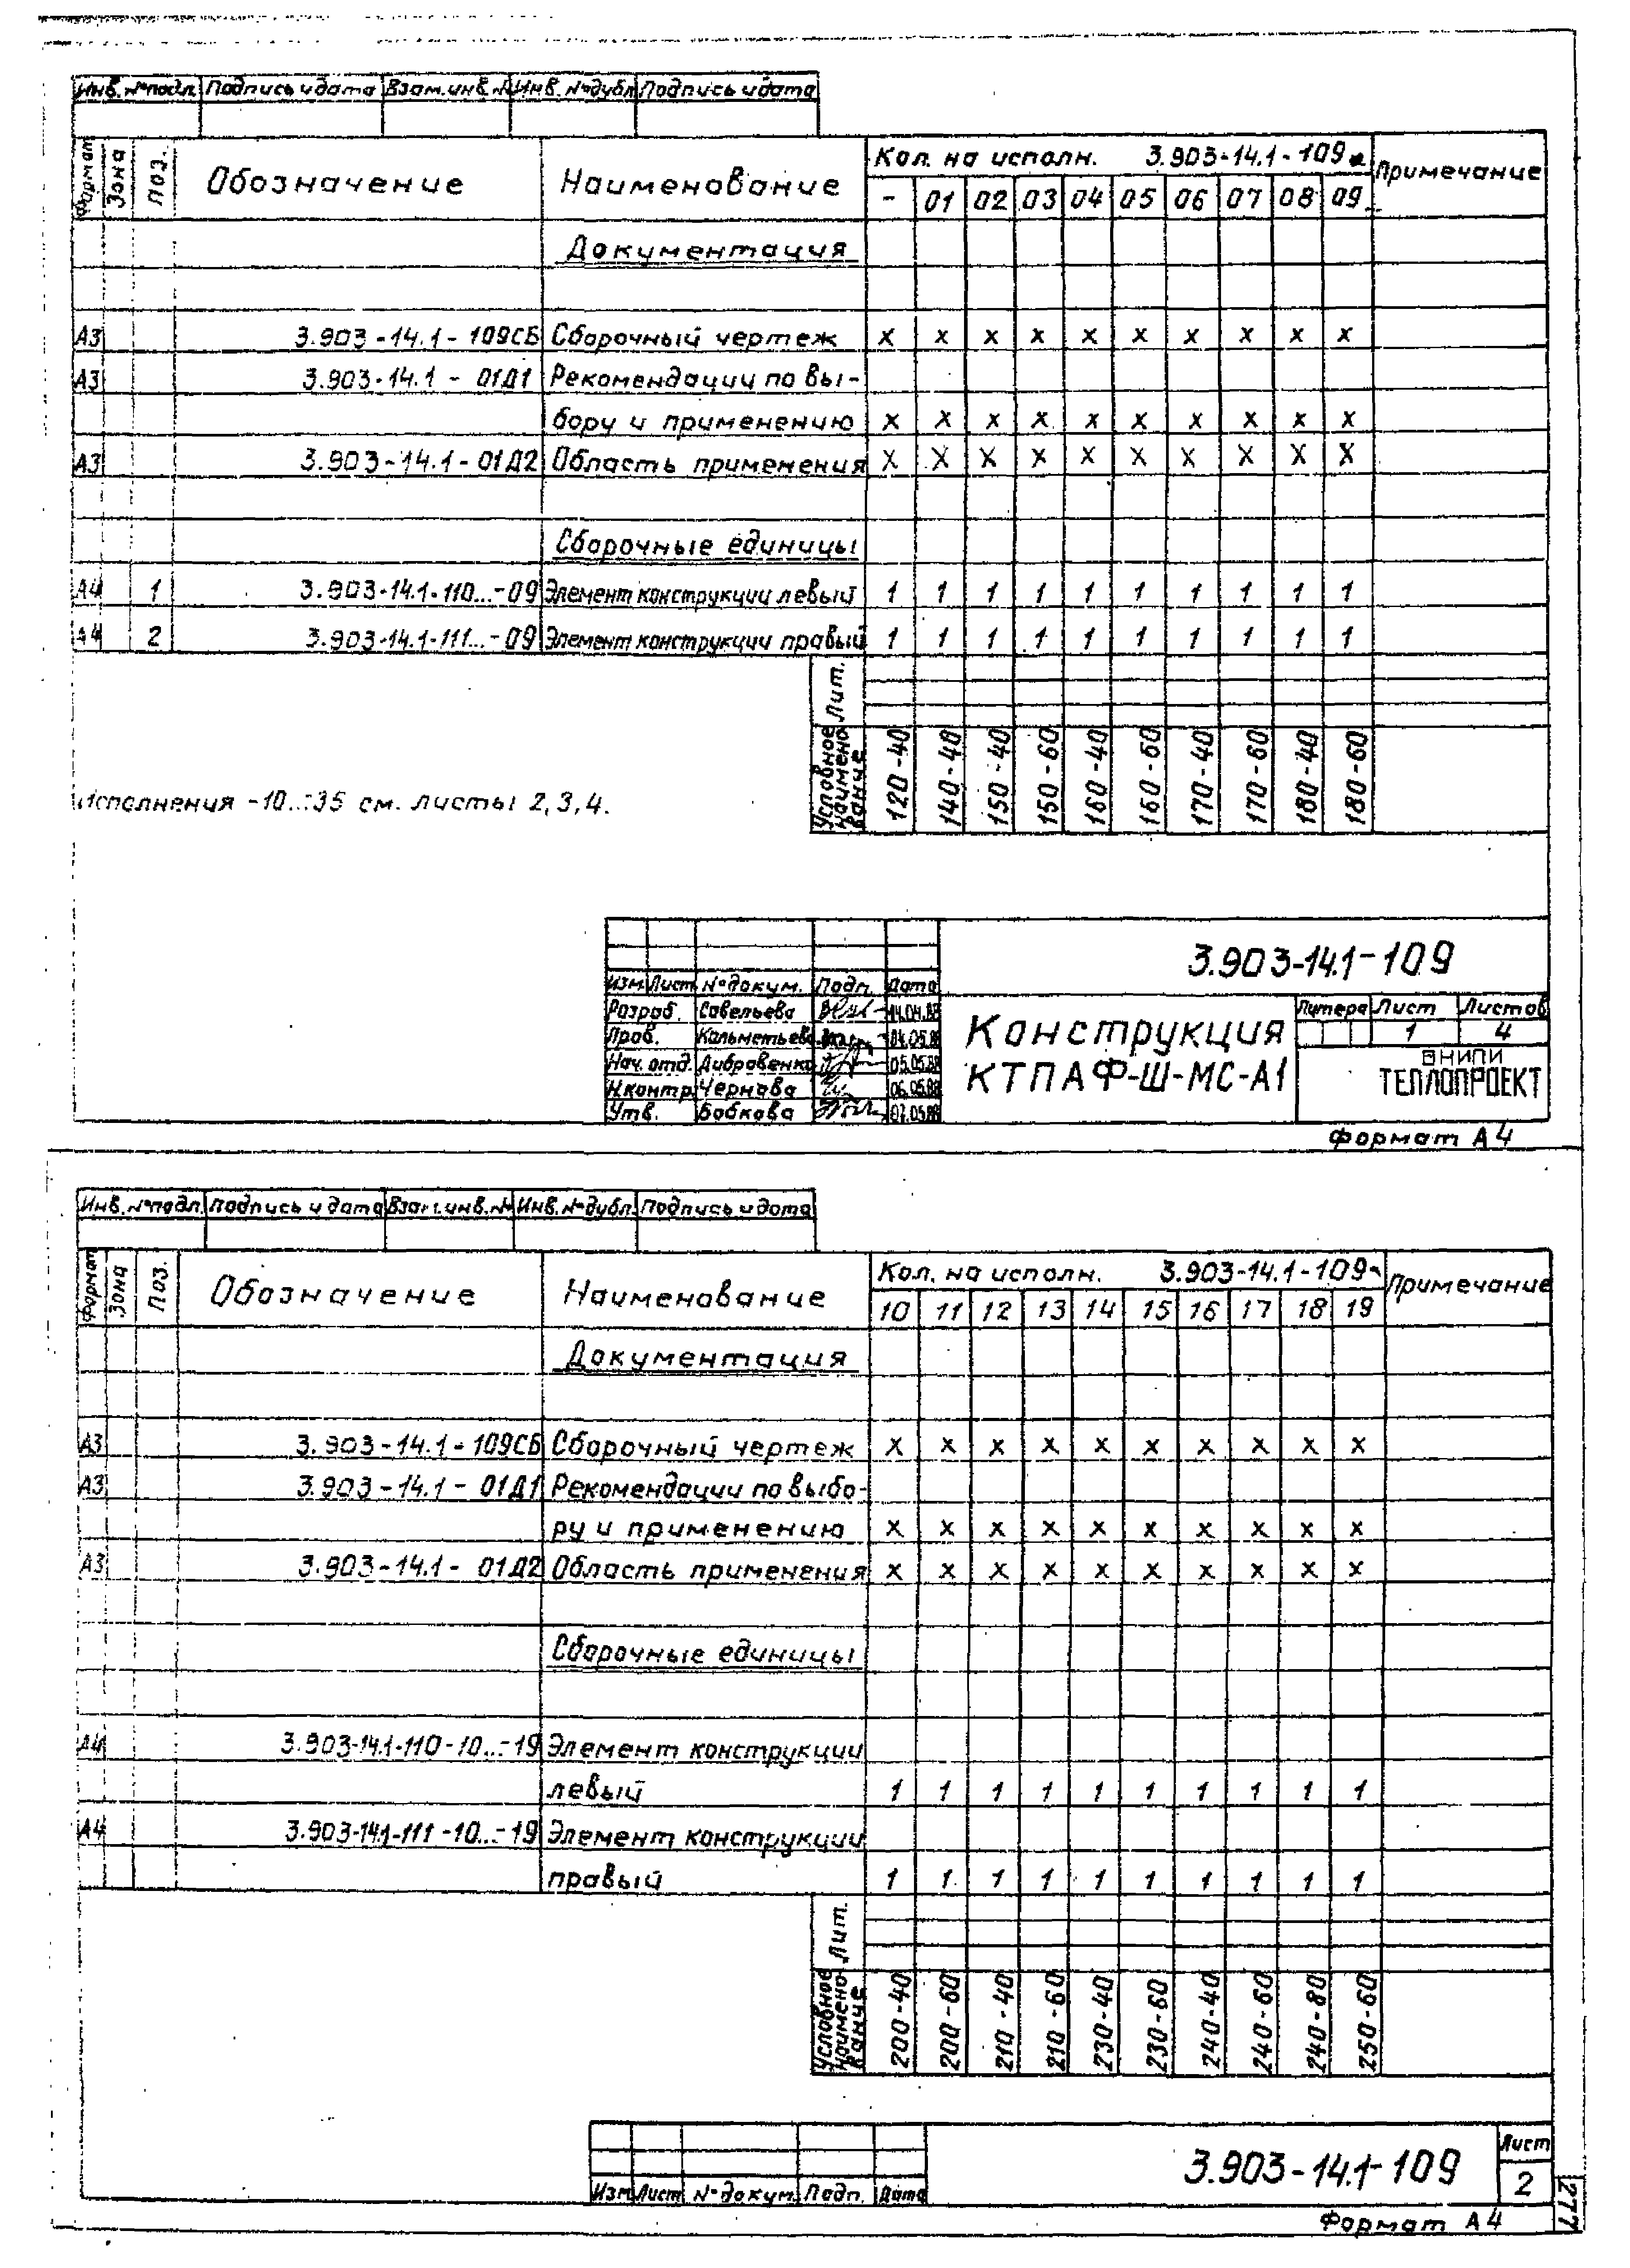 Инв. №подл. Подпись и дата Взам. инв. № Инв. №дубл. Подпись и дата
Формат Зона Поз. Обозначение Наименование Кол. на исполн. 3.903-14.1-109- Примечание
- 01 02 03 04 05 06 07 08 09
Документация
А3 3.903-14.1-109СБ Сборочный чертеж х х х х х х х х х х
А3 3.903-14.1-01Д1 Рекомендации по вы-
бору и применению х х х х х х х х х х
А3 3.903-14.1-01Д2 Область применения х х х х х х х х х х
Сборочные единицы
А4 1 3.903-14.1-110...-09 Элемент конструкции левый 1 1 1 1 1 1 1 1 1 1
А4 2 3.903-14.1-111...-09 Элемент конструкции правый 1 1 1 1 1 1 1 1 1 1
Лит.
Условное наименование 120-40 140-40 150-40 150-60 160-40 160-60 170-40 170-60 180-40 180-60
Исполнения -10...-35 см. листы 2,3,4.
3.903-14.1-109
Изм. Лист №докум. Подп. Дата
Разраб. Савельева 14.04.88
Пров. Кальметьева 04.05.88
Нач. отд. Дибровенко 05.05.88
Н.контр. Чернова 06.05.88
Утв. Бобкова 07.05.88
Конструкция
КТПАФ-Ш-МС-А1
Литера Лист Листов
1 4
ВНИПИ
ТЕПЛОПРОЕКТ
Формат А4
Инв. №подл. Подпись и дата Взам. инв. № Инв. №дубл. Подпись и дата
Формат Зона Поз. Обозначение Наименование Кол. на исполн. 3.903-14.1-109- Примечание
10 11 12 13 14 15 16 17 18 19
Документация
А3 3.903-14.1-109СБ Сборочный чертеж х х х х х х х х х х
А3 3.903-14.1-01Д1 Рекомендации по выбо-
ру и применению х х х х х х х х х х
А3 3.903-14.1-01Д2 Область применения х х х х х х х х х х
Сборочные единицы
А4 3.903-14.1-110-10...-19 Элемент конструкции
левый 1 1 1 1 1 1 1 1 1 1
А4 3.903-14.1-111-10...-19 Элемент конструкции
правый 1 1 1 1 1 1 1 1 1 1
Лит.
Условное наименование 200-40 200-60 210-40 210-60 230-40 230-60 240-40 240-60 240-80 250-60
3.903-14.1-109
Лист
2
Изм. Лист №докум. Подп. Дата
Формат А4
277